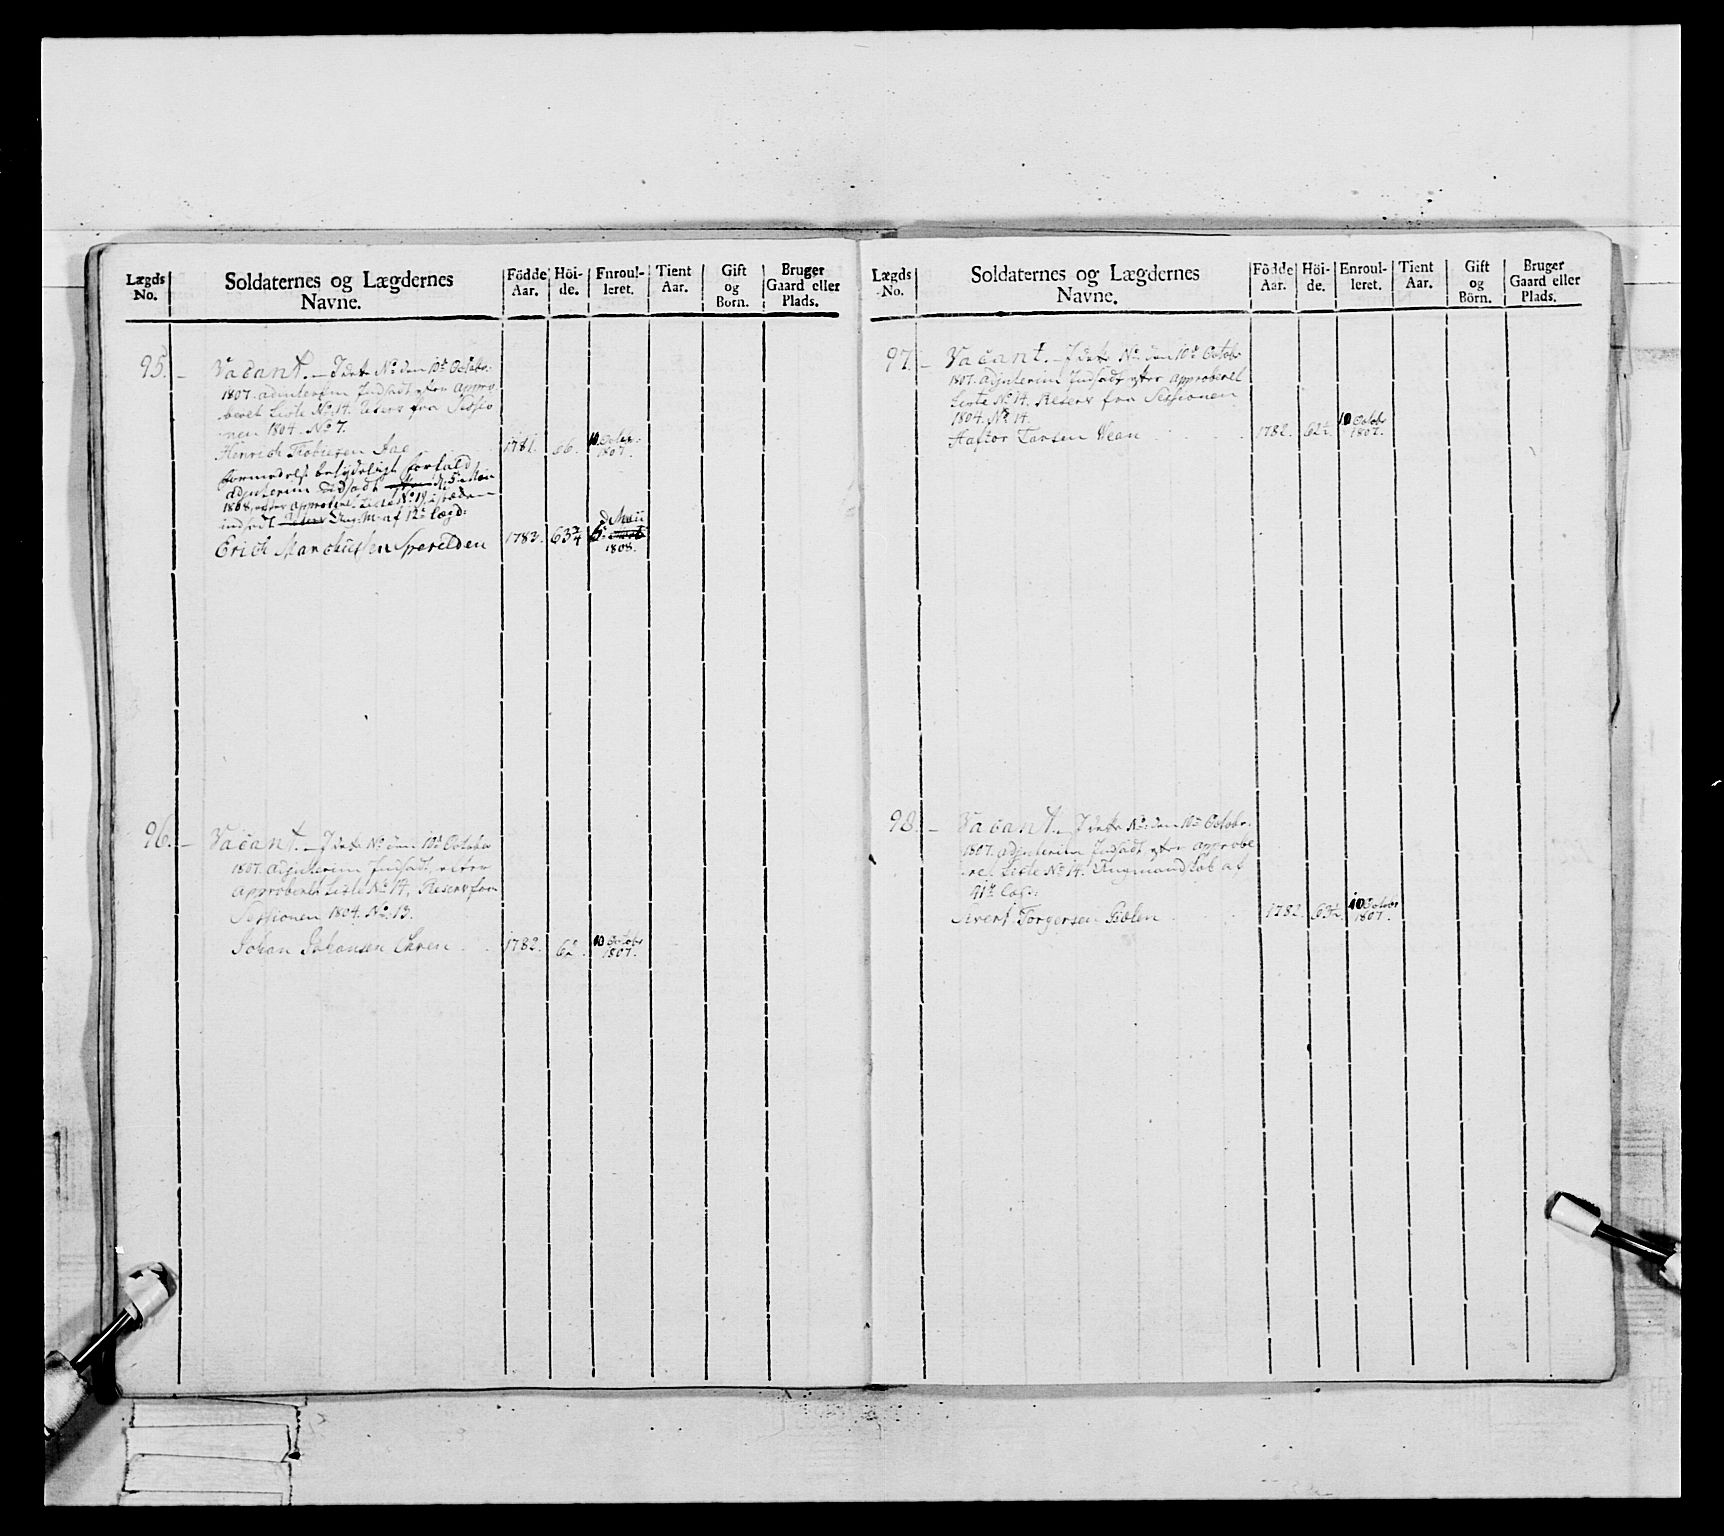 Lægds No.
Soldaternes og Lægdernes Navne.
Födde Aar.
Höi-de.
Enroul-leret.
Tient Aar.
Gift og Born.
Bruger Gaard eller Plads.
95. Vacant. - I dette No. den 10de Octobr:
1807. adinterim Indsadt efter appro
beret Liste No. 14. Reserv fra Sessio
nen 1804. No. 7.
Henrich Tobiesen Aae 1781. 66. 10 Octobr: 1807.
formedelst betydeligt forfald
adjnterim Udsadt d. 5te Maii
1808, efter approberet Liste No. 19, i stæden
indsadt Ung: M: af 12te Lægd:
Erich Marchussen Sperilden 1783. 63¾ 5 d Maii 1808.
96. Vacant. - I dette No. den 10de Octobr
1807. Adjnterim Indsadt, efter
approberet Liste No. 14. Reserv fra
Sessionen 1804. No. 13.
Johan Johansen Ehren 1782. 62. 10 Octobr 1807.
Lægds No.
Soldaternes og Lægdernes Navne.
Födde Aar.
Höi-de.
Enroul-leret.
Tient Aar.
Gift og Börn.
Bruger Gaard eller Plads.
97. Vacant. - I dette No. den 10de Octobr
1807. adjnterim Indsadt efter approberet
Liste No. 14. Reserv fra Sessionen
1804. No. 14.
Haftor Larsen Wean 1782. 62½. 10 Octobr 1807.
98. Vacant. - I dette No: den 10de Octobr.
1807. adjnterim Indsadt efter approbe
ret Liste No. 14. Ungmandskab af
91de Lægd:
Sivert Torgersen 1782. 63½. 10 Octobr 1807.